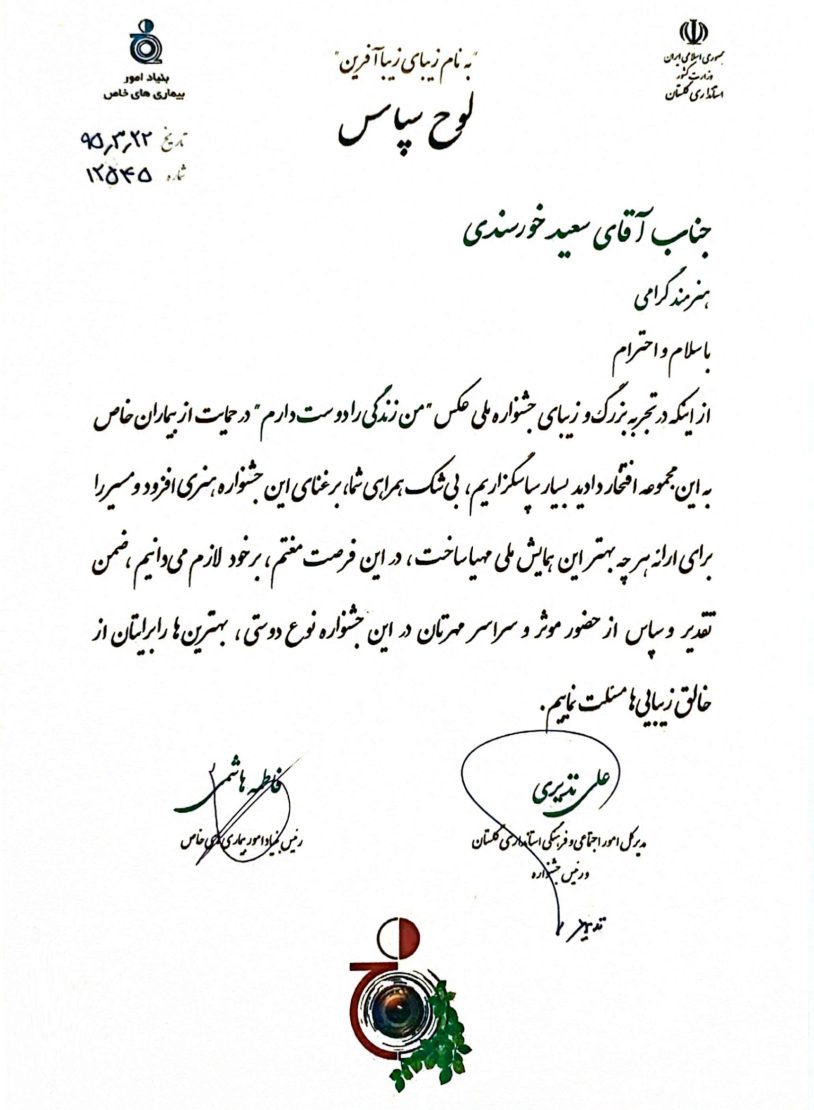 جمهوری اسلامی ایران
وزارت کشور
استانداری گلستان
"به نام زیبای زیباآفرین"
لوح سپاس
بنیاد امور
بیماری های خاص
تاریخ ۹۵,۳,۲۲
شماره ۱۲۵۴۵
جناب آقای سعید خورسندی
هنرمند گرامی
با سلام و احترام
از اینکه در تجربه بزرگ و زیبای جشنواره ملی عکس "من زندگی را دوست دارم" در حمایت از بیماران خاص
به این مجموعه افتخار دادید بسیار سپاسگزاریم، بی شک همراهی شما، بر غنای این جشنواره هنری افزود و مسیر را
برای ارائه هر چه بهتر این همایش ملی مهیا ساخت، در این فرصت مغتنم، بر خود لازم می دانیم، ضمن
تقدیر و سپاس از حضور موثر و سراسر مهرتان در این جشنواره نوع دوستی، بهترین ها را برایتان از
خالق زیبایی ها مسئلت نماییم.
علی نذیری
مدیر کل امور اجتماعی و فرهنگی استانداری گلستان
و رئیس جشنواره
فاطمه هاشمی
رئیس بنیاد امور بیماری های خاص